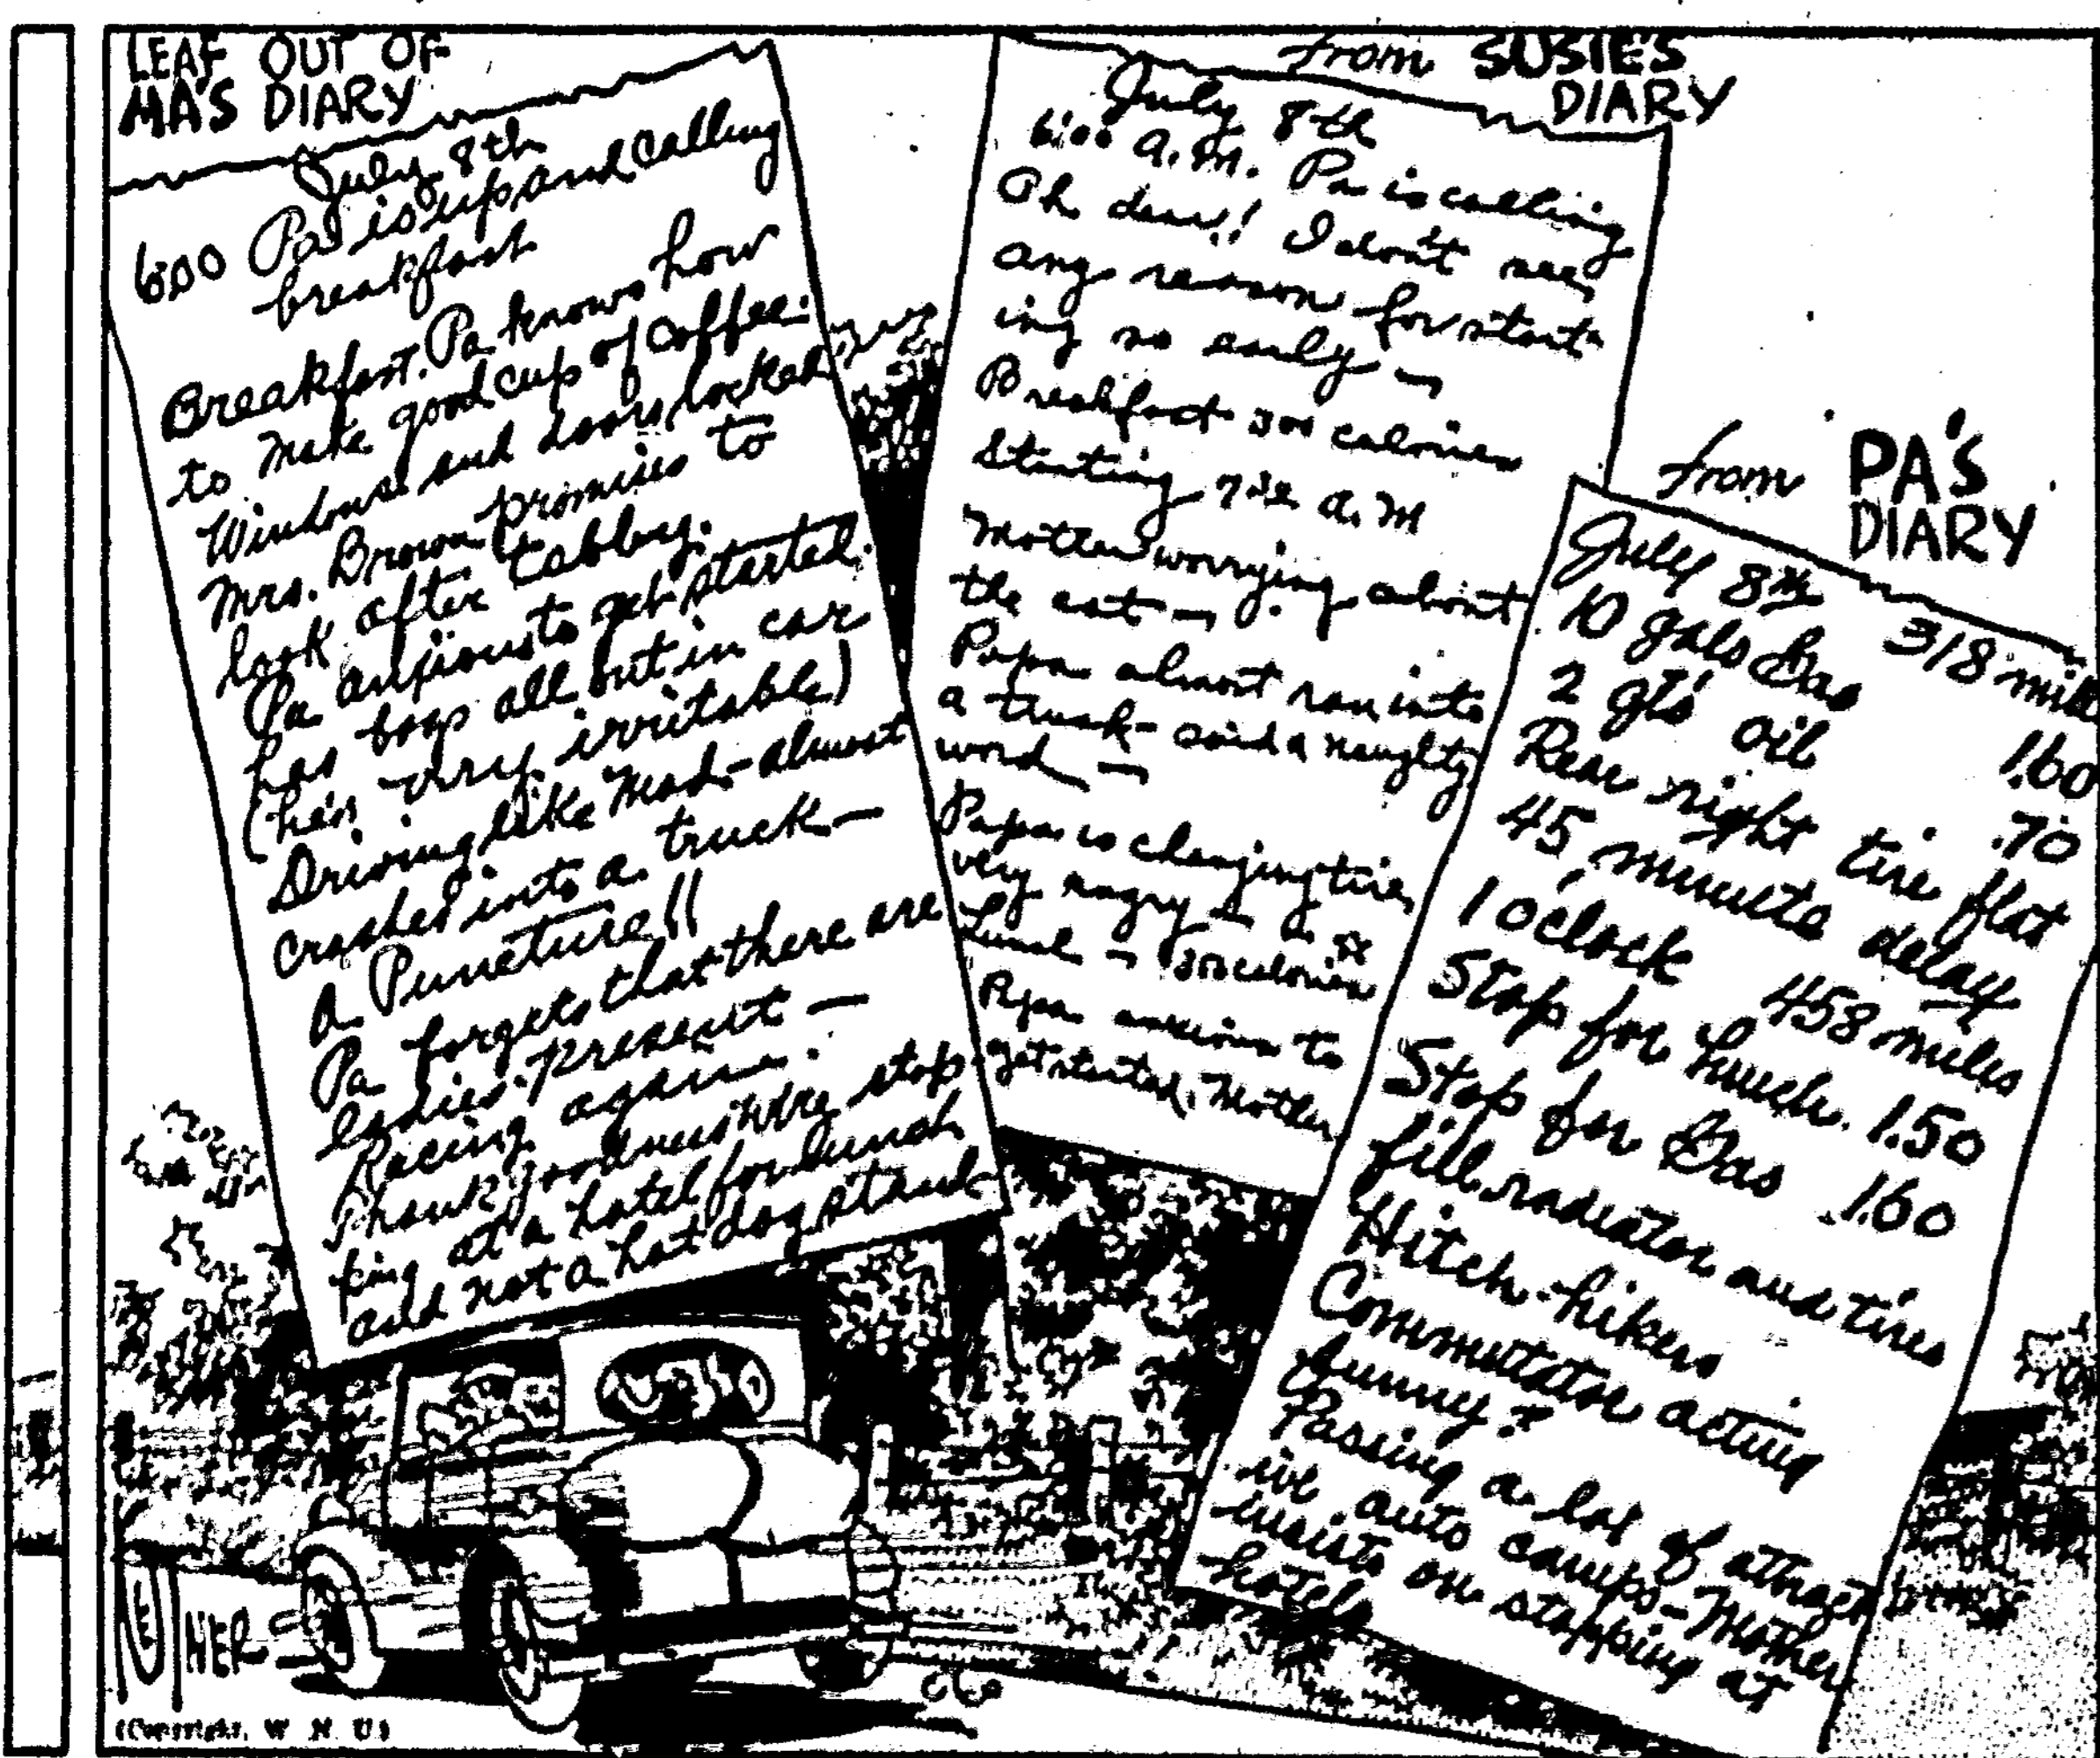 LEAF OUT OF
MA'S DIARY
July 8th
6:00 Pa is up and calling
breakfast
Breakfast. Pa knows how
to make good cup of coffee.
Windows and doors locked
Mrs. Brown promises to
look after tabby.
Pa anxious to get started.
has bags all out in car
(he's very irritable)
Driving like mad - almost
crashed into a truck —
A Puncture!!
Pa forgets that there are
ladies present —
Racing again.
Thank goodness we're stop-
ping at a hotel for lunch
and not a hot dog stand
from SUSIE'S
DIARY
July 8th
6:00 a.m. Pa is calling
Oh dear!! I don't see
any reason for start-
ing so early —
Breakfast 300 calories
Starting 7 a.m
Mother worrying about
the cat —
Papa almost ran into
a truck - said a naughty
word —
Papa is changing tire
very angry
Lunch — calories
Papa anxious to
get started. Mother
from PA'S
DIARY
July 8th 318 miles
10 gals Gas 1.60
2 qts oil .70
Rear right tire flat
45 minute delay
1 oclock 458 miles
Stop for lunch. 1.50
Stop for Gas 1.60
fill radiator and tires
Hitch-hikers
Commutator acting
funny?
Passing a lot of attract-
ive auto camps - Mother
insists on stopping at
hotels
(Copyright, W. N. U.)